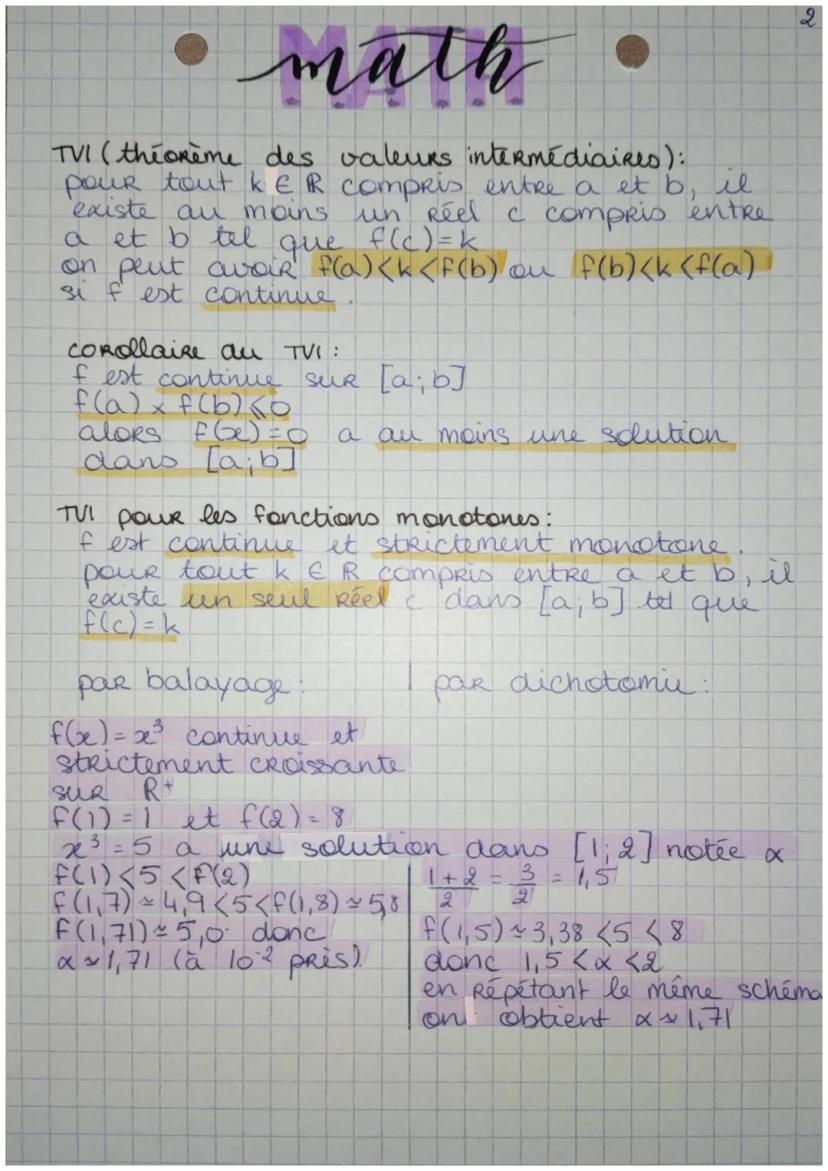 2
math
MATH
TVI (théorème des valeurs intermédiaires):
pour tout k ∈ ℝ compris entre a et b, il
existe au moins un réel c compris entre
a et b tel que f(c)=k
on peut avoir f(a)<k<f(b) ou f(b)<k<f(a)
si f est continue.
corollaire au TVI:
f est continue sur [a;b]
f(a) x f(b)⩽0
alors f(x)=0 a au moins une solution
dans [a;b]
TVI pour les fonctions monotones:
f est continue et strictement monotone.
pour tout k ∈ ℝ compris entre a et b, il
existe un seul réel c dans [a;b] tel que
f(c)=k
par balayage: | par dichotomie:
f(x)=x³ continue et
strictement croissante
sur R⁺
f(1)=1 et f(2)=8
x³=5 a une solution dans [1;2] notée α
f(1)<5<f(2)
f(1,7)≃4,9<5<f(1,8)≃5,8
f(1,71)≃5,0 donc
α≃1,71 (à 10⁻² près)
1+2/2 = 3/2 = 1,5
f(1,5)≃3,38<5<8
donc 1,5<α<2
en répétant le même schéma
on obtient α≃1,71